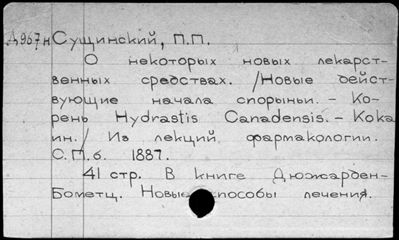 Д967н Сущинский, П.П.
О некоторых новых лекарст-
венных средствах. /Новые дейст-
вующие начала спорыньи. - Ко-
рень Hydrastis Canadensis. - Кока
ин./ Из лекций фармакологии.
С.П.б. 1887.
41 стр. В книге Дюжарден-
Бометц. Новые способы лечения.